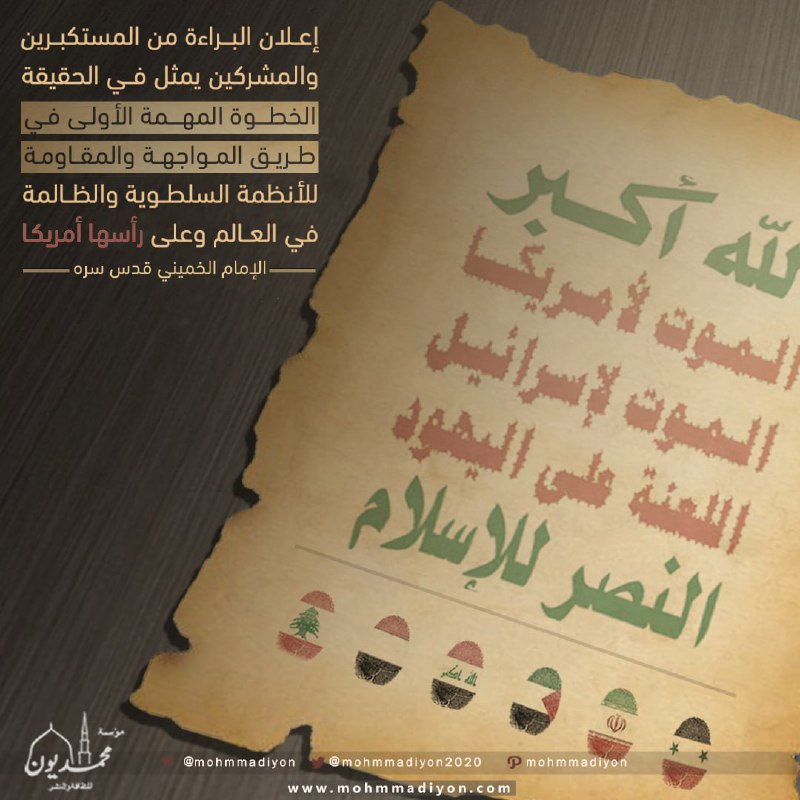 إعلان البراءة من المستكبرين
والمشركين يمثل في الحقيقة
الخطوة المهمة الأولى في
طريق المواجهة والمقاومة
للأنظمة السلطوية والظالمة
في العالم وعلى رأسها أمريكا
الإمام الخميني قدس سره
لله أكبر
الموت لأمريكا
الموت لإسرائيل
اللعنة على اليهود
النصر للإسلام
الله اكبر
مؤسسة
محمديون
للثقافة والنشر
@mohmmadiyon
@mohmmadiyon2020
mohmmadiyon
www.mohmmadiyon.com